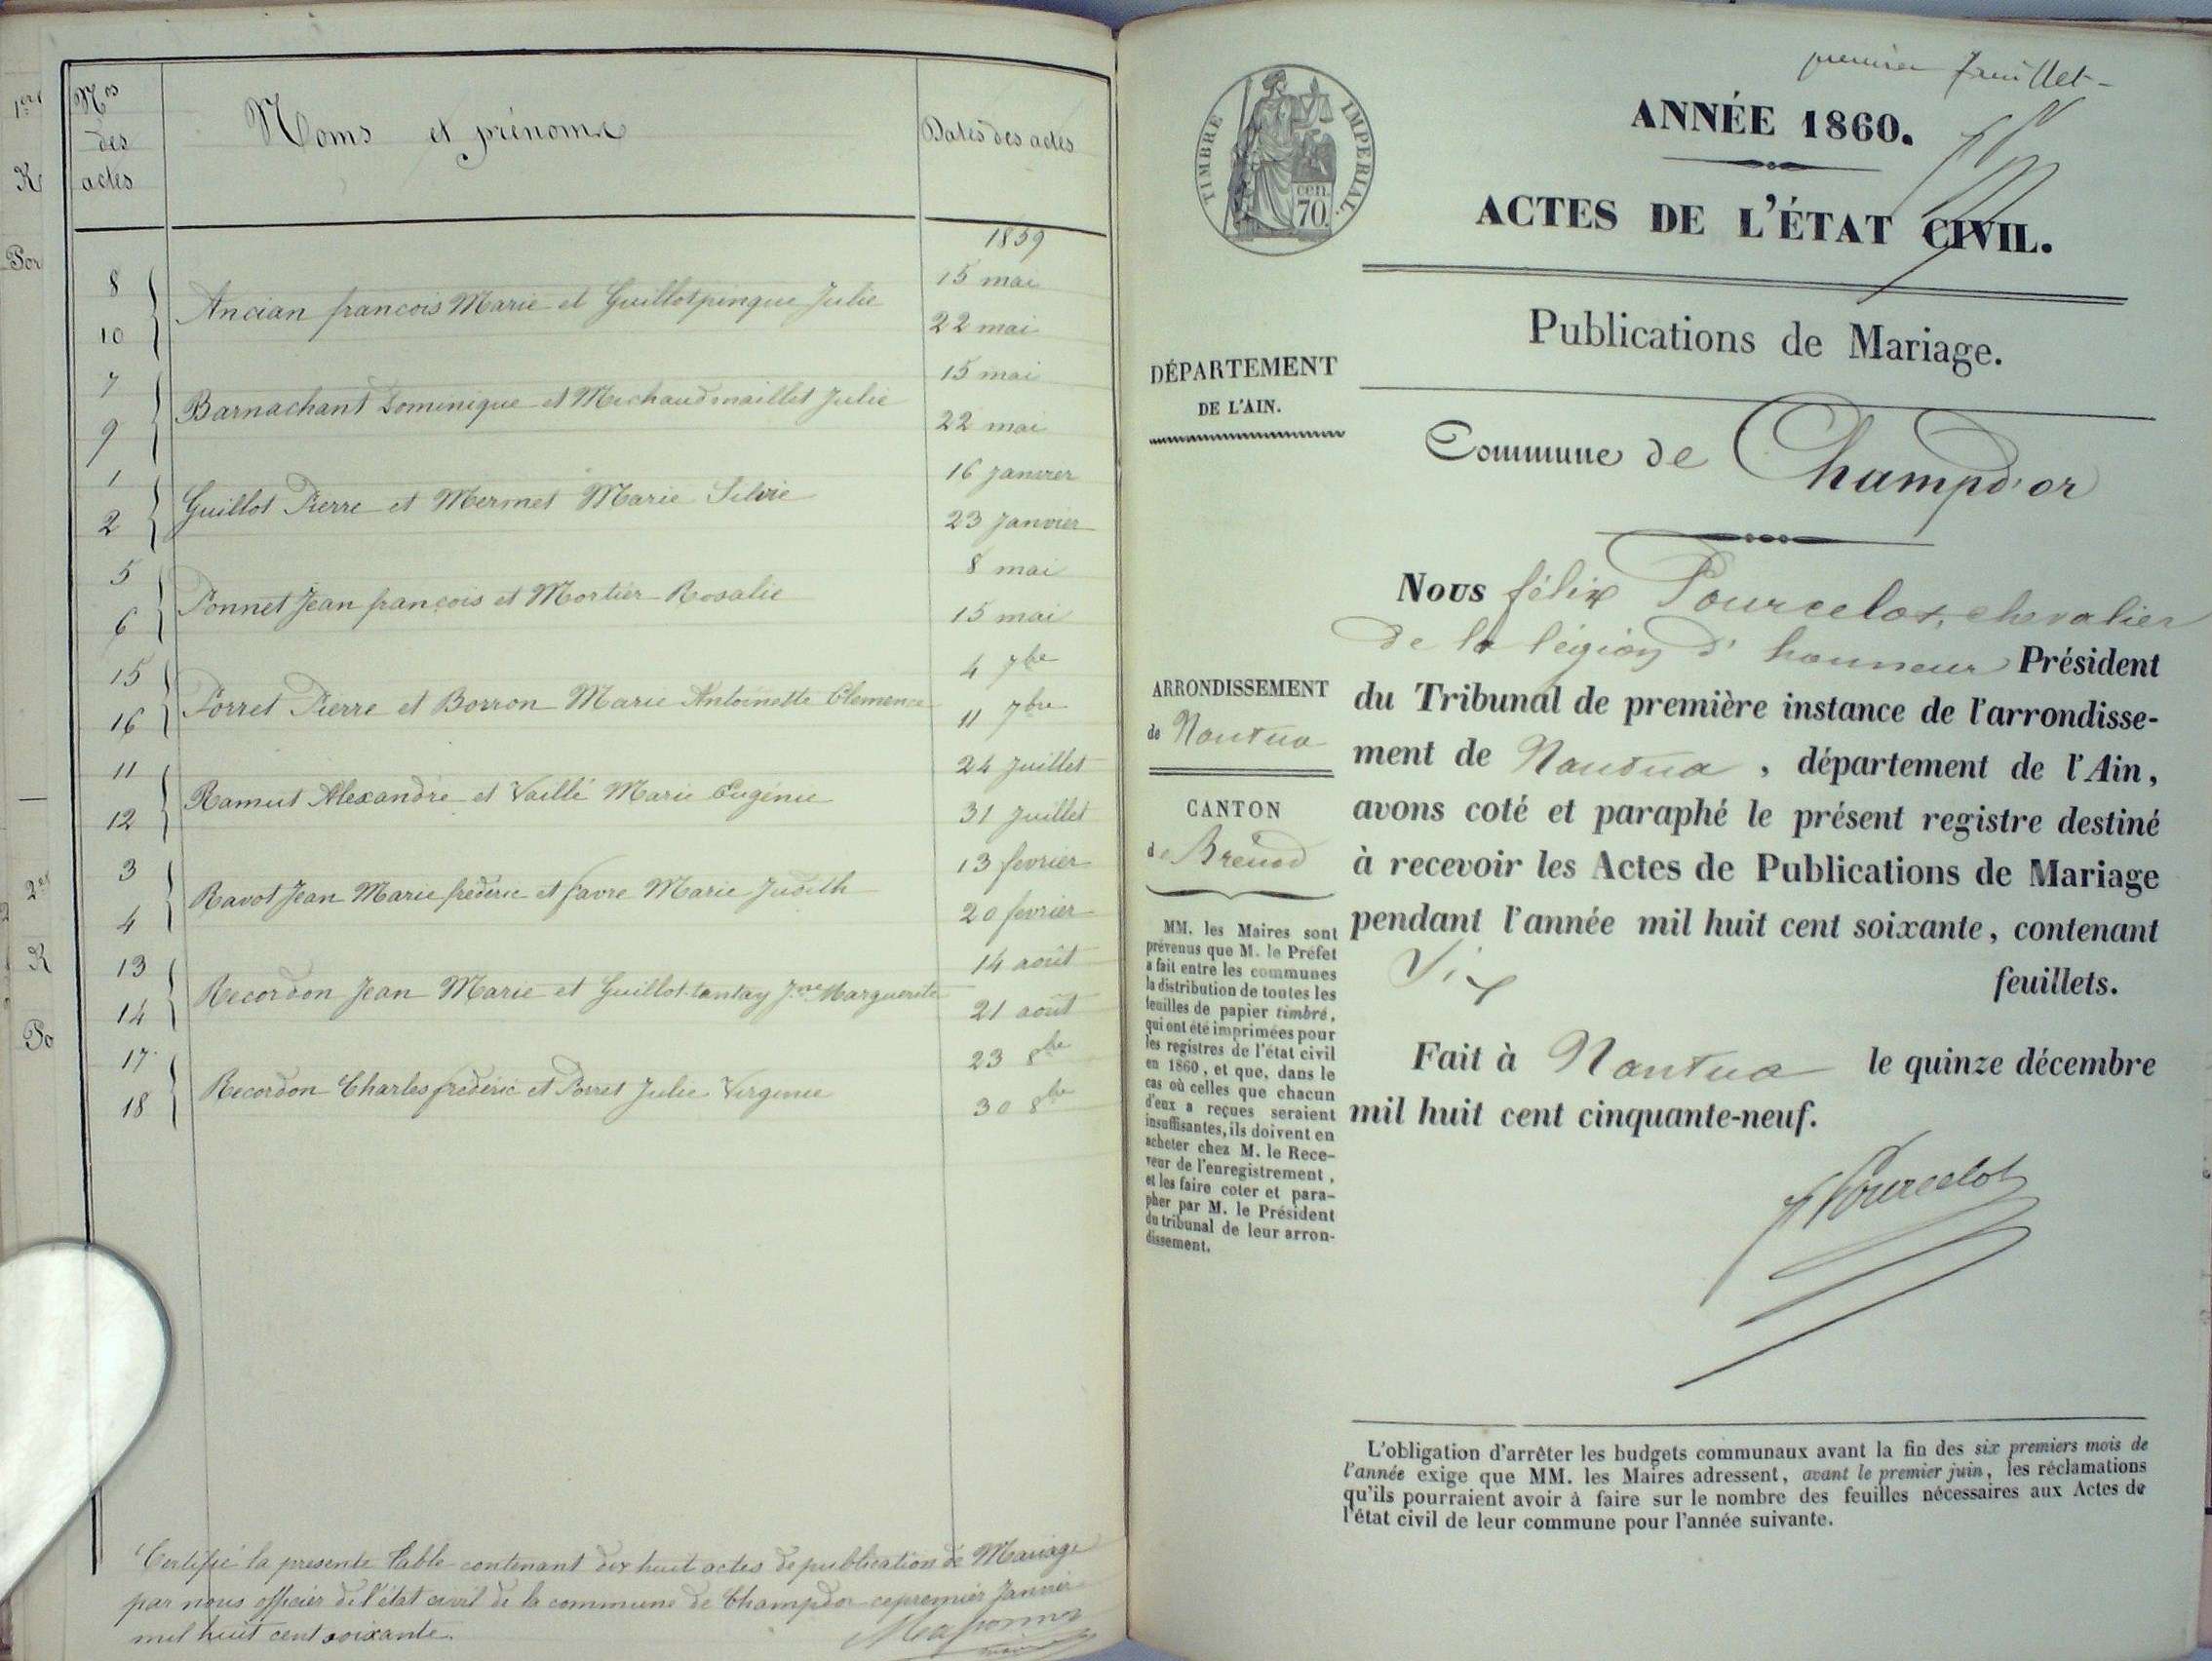 Nos
des
actes
Noms et prénoms
Dates des actes
1859
8
15 mai
Ancian francois Marie et Guillotpinque Julie
10
22 mai
7
15 mai
Barnachant Dominique et Michaudmaillet Julie
9
22 mai
1
16 Janvier
Guillot Pierre et Mermet Marie Silvie
2
23 Janvier
5
8 mai
Ponnet Jean françois et Mortier Rosalie
6
15 mai
15
4 7bre
Porret Pierre et Borron Marie Antoinette Clemence
16
11 7bre
11
24 Juillet
Ramut Alexandre et Vaillé Marie Eugénie
12
31 Juillet
3
13 fevrier
Ravot Jean Marie frederic et favre Marie Judith
4
20 fevrier
13
14 août
Recordon Jean Marie et Guillot-tantay Jne Marguerite
14
21 août
17
23 8bre
Recordon Charles frédéric et Porret Julie Virginie
18
30 8bre
Certifié la presente table contenant dix huit actes de publication de Mariage
par nous officier de l'état civil de la commune de Champdor ce premier Janvier
mil huit cent soixante.
premier feuillet
TIMBRE IMPERIAL.
cen.
70.
ANNÉE 1860.
ACTES DE L'ÉTAT CIVIL.
Publications de Mariage.
DÉPARTEMENT
DE L'AIN.
Commune de Champd'or
Nous félix Pourcelot, chevalier
de la légion d'honneur Président
du Tribunal de première instance de l'arrondisse-
ment de Nantua, département de l'Ain,
avons coté et paraphé le présent registre destiné
à recevoir les Actes de Publications de Mariage
pendant l'année mil huit cent soixante, contenant
Six feuillets.
Fait à Nantua le quinze décembre
mil huit cent cinquante-neuf.
F Pourcelot
ARRONDISSEMENT
de Nantua
CANTON
de Brénod
MM. les Maires sont
prévenus que M. le Préfet
a fait entre les communes
la distribution de toutes les
feuilles de papier timbré,
qui ont été imprimées pour
les registres de l'état civil
en 1860, et que, dans le
cas où celles que chacun
d'eux a reçues seraient
insuffisantes, ils doivent en
acheter chez M. le Rece-
veur de l'enregistrement,
et les faire coter et para-
pher par M. le Président
du tribunal de leur arron-
dissement.
L'obligation d'arrêter les budgets communaux avant la fin des six premiers mois de
l'année exige que MM. les Maires adressent, avant le premier juin, les réclamations
qu'ils pourraient avoir à faire sur le nombre des feuilles nécessaires aux Actes de
l'état civil de leur commune pour l'année suivante.